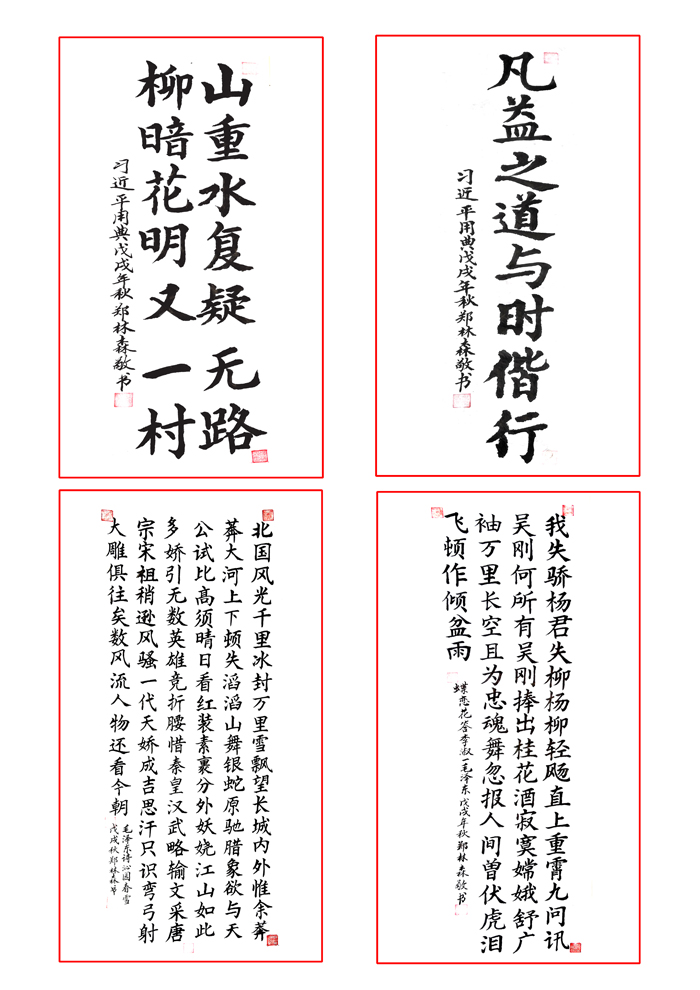 山重水复疑无路
柳暗花明又一村
习近平用典戊戌年秋郑林森敬书
凡益之道与时偕行
习近平用典戊戌年秋郑林森敬书
北国风光千里冰封万里雪飘望长城内外惟余莽
莽大河上下顿失滔滔山舞银蛇原驰腊象欲与天
公试比高须晴日看红装素裹分外妖娆江山如此
多娇引无数英雄竞折腰惜秦皇汉武略输文采唐
宗宋祖稍逊风骚一代天娇成吉思汗只识弯弓射
大雕俱往矣数风流人物还看今朝
毛泽东诗沁园春雪
戊戌秋郑林森书
我失骄杨君失柳杨柳轻飏直上重霄九问讯
吴刚何所有吴刚捧出桂花酒寂寞嫦娥舒广
袖万里长空且为忠魂舞忽报人间曾伏虎泪
飞顿作倾盆雨
蝶恋花答李淑一毛泽东戊戌年秋郑林森敬书